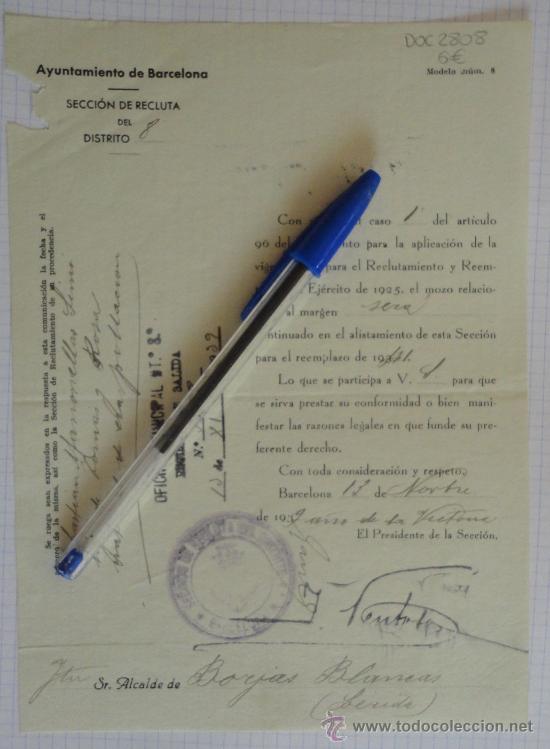 DOC 2808
6€
Ayuntamiento de Barcelona
Modelo núm. 8
SECCIÓN DE RECLUTA
DEL
DISTRITO 8
Con caso 1º del artículo
96 del ento para la aplicación de la
vige para el Reclutamiento y Reem-
Ejército de 1925, el mozo relacio-
al margen será
continuado en el alistamiento de esta Sección
para el reemplazo de 1941.
Lo que se participa a V. para que
se sirva prestar su conformidad o bien mani-
festar las razones legales en que funde su pre-
ferente derecho.
Con toda consideración y respeto,
Barcelona 13 de Novbre
de 19 año de la Victoria
El Presidente de la Sección,
Se ruega sean expresados en la respuesta a esta comunicación la fecha y el
número de la misma, así como la Sección de Reclutamiento de su procedencia.
Mamonellas Simó
de y Rosa
OFICI MUNICIPAL 8.º
SALIDA
N.º
13 de XI
Sr. Alcalde de Borjas Blancas
(Lerida)
www.todocoleccion.net